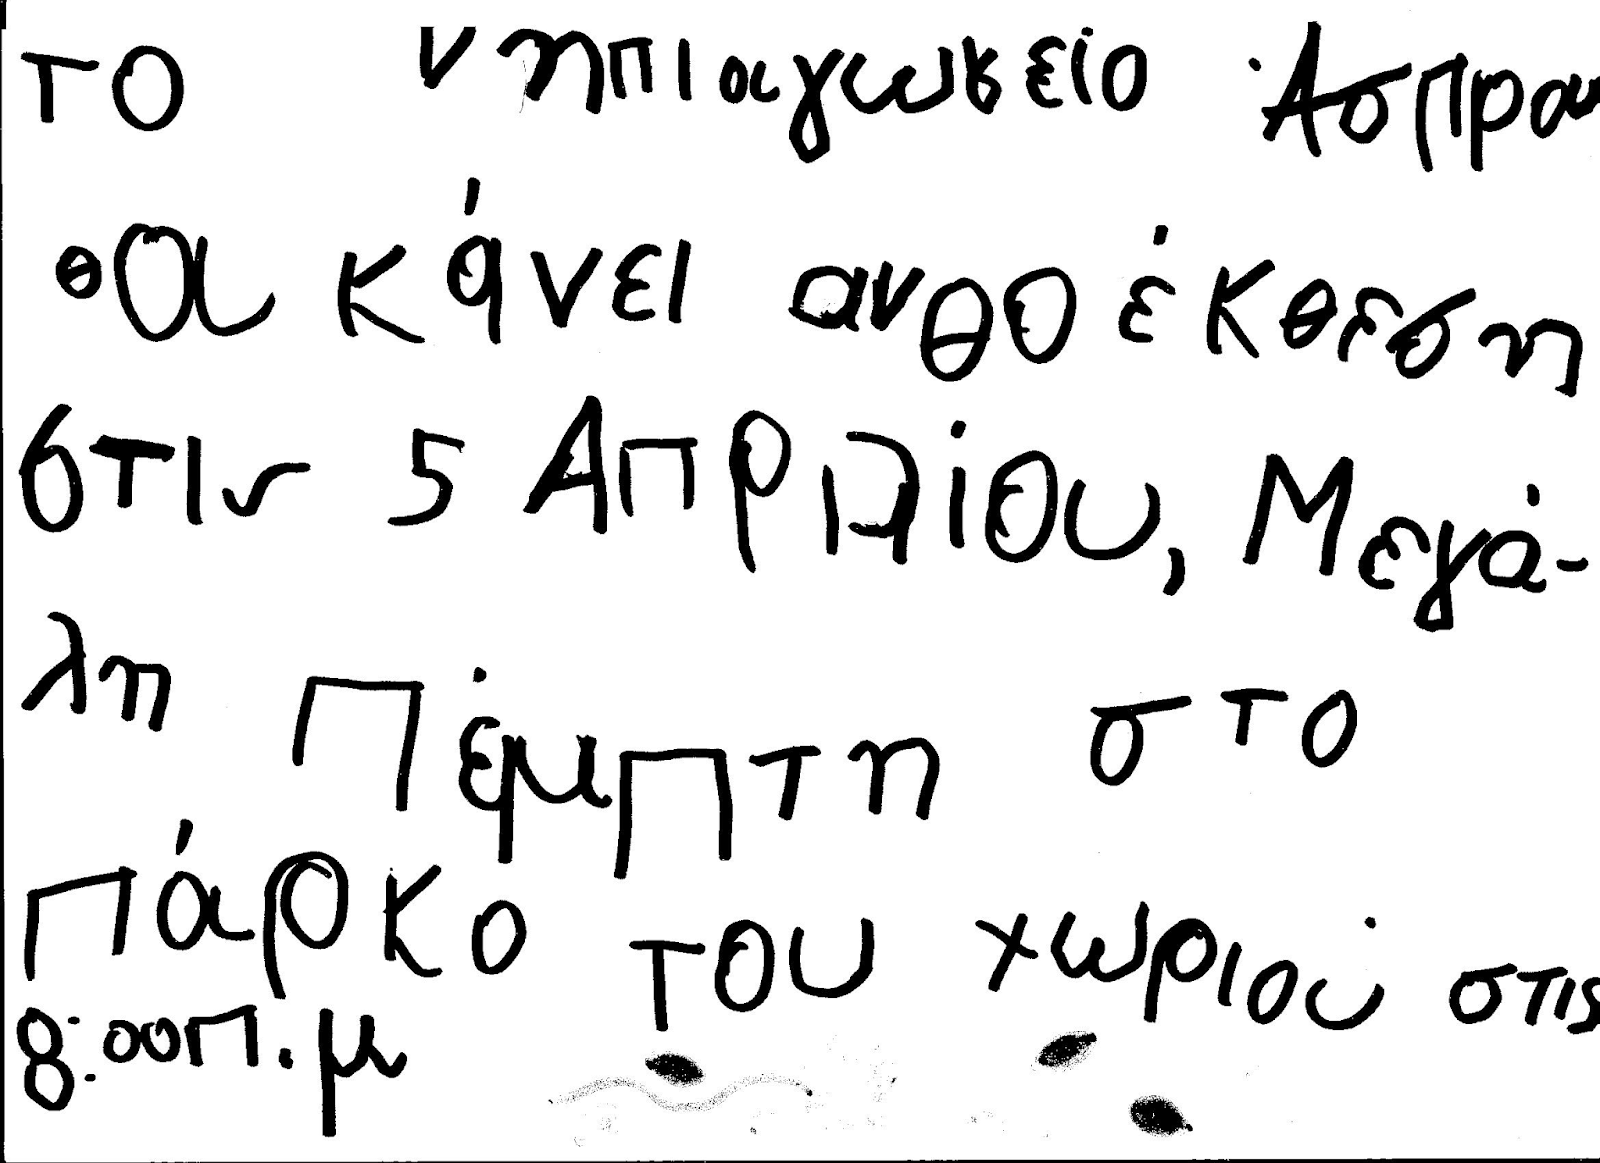 το νηπιαγωκείο Άσπρου
θα κάνει ανθο έκθεση
στις 5 Απριλίου, Μεγά-
λη Πέμπτη στο
πάρκο του χωριού στις
8:00 π.μ